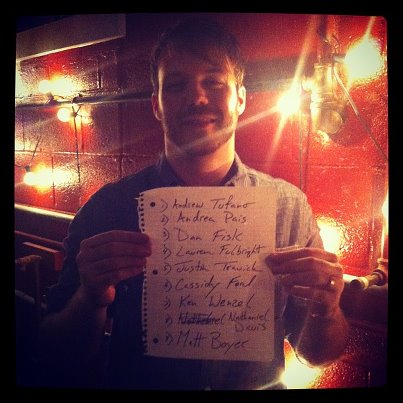 1) Andrew Tufano
2) Andrea Pais
3) Dan Fisk
4) Lauren Fulbright
5) Justin Trawick
6) Cassidy Ford
7) Ken Wenzel
8) Nathaniel
Davis
9) Matt Boyer